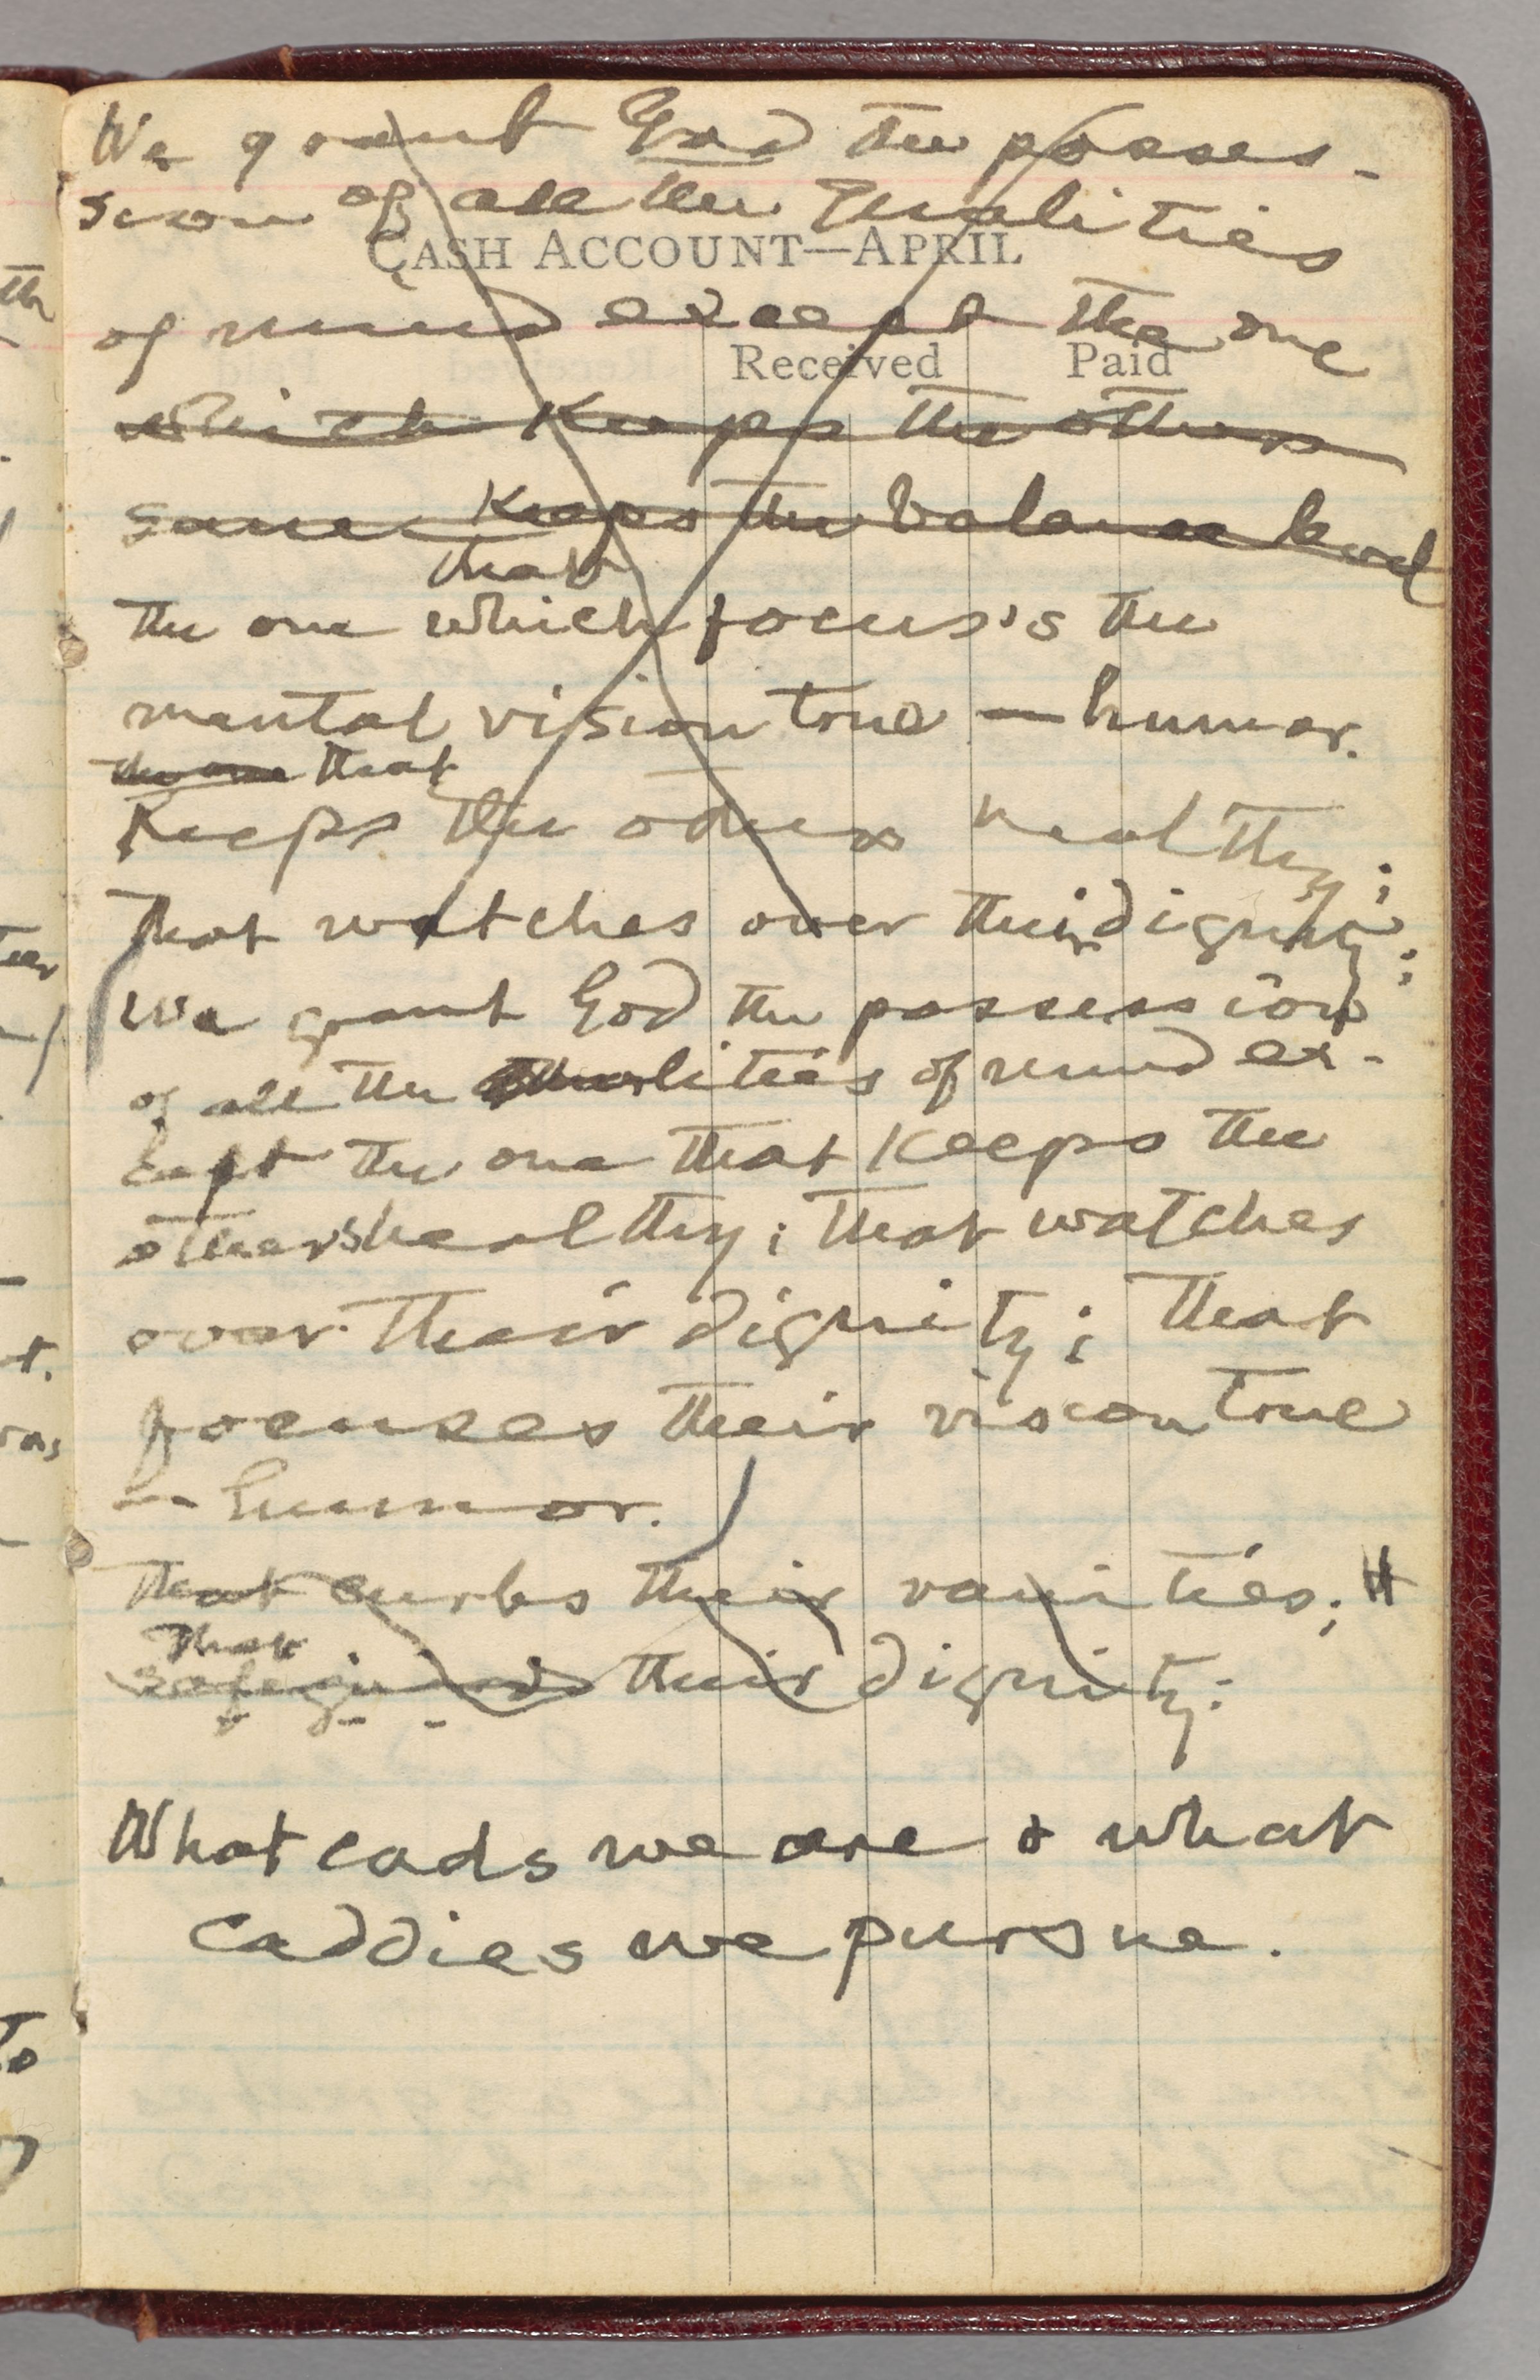 We grant God the posses-
sion of all the qualities
CASH ACCOUNT—APRIL
of mind except the one
Received Paid
which keeps the others
sane. Keeps the balance &
that
the one which focus's the
mental vision true — humor.
the one that
Keeps the others healthy;
that watches over their dignity;
We grant God the possession
of all the qualities of mind ex-
cept the one that keeps the
others healthy; that watches
over their dignity; that
focuses their vision true
— humor.
that curbs their vanities; #
that
safeguards their dignity:
What cads we are & what
caddies we pursue.